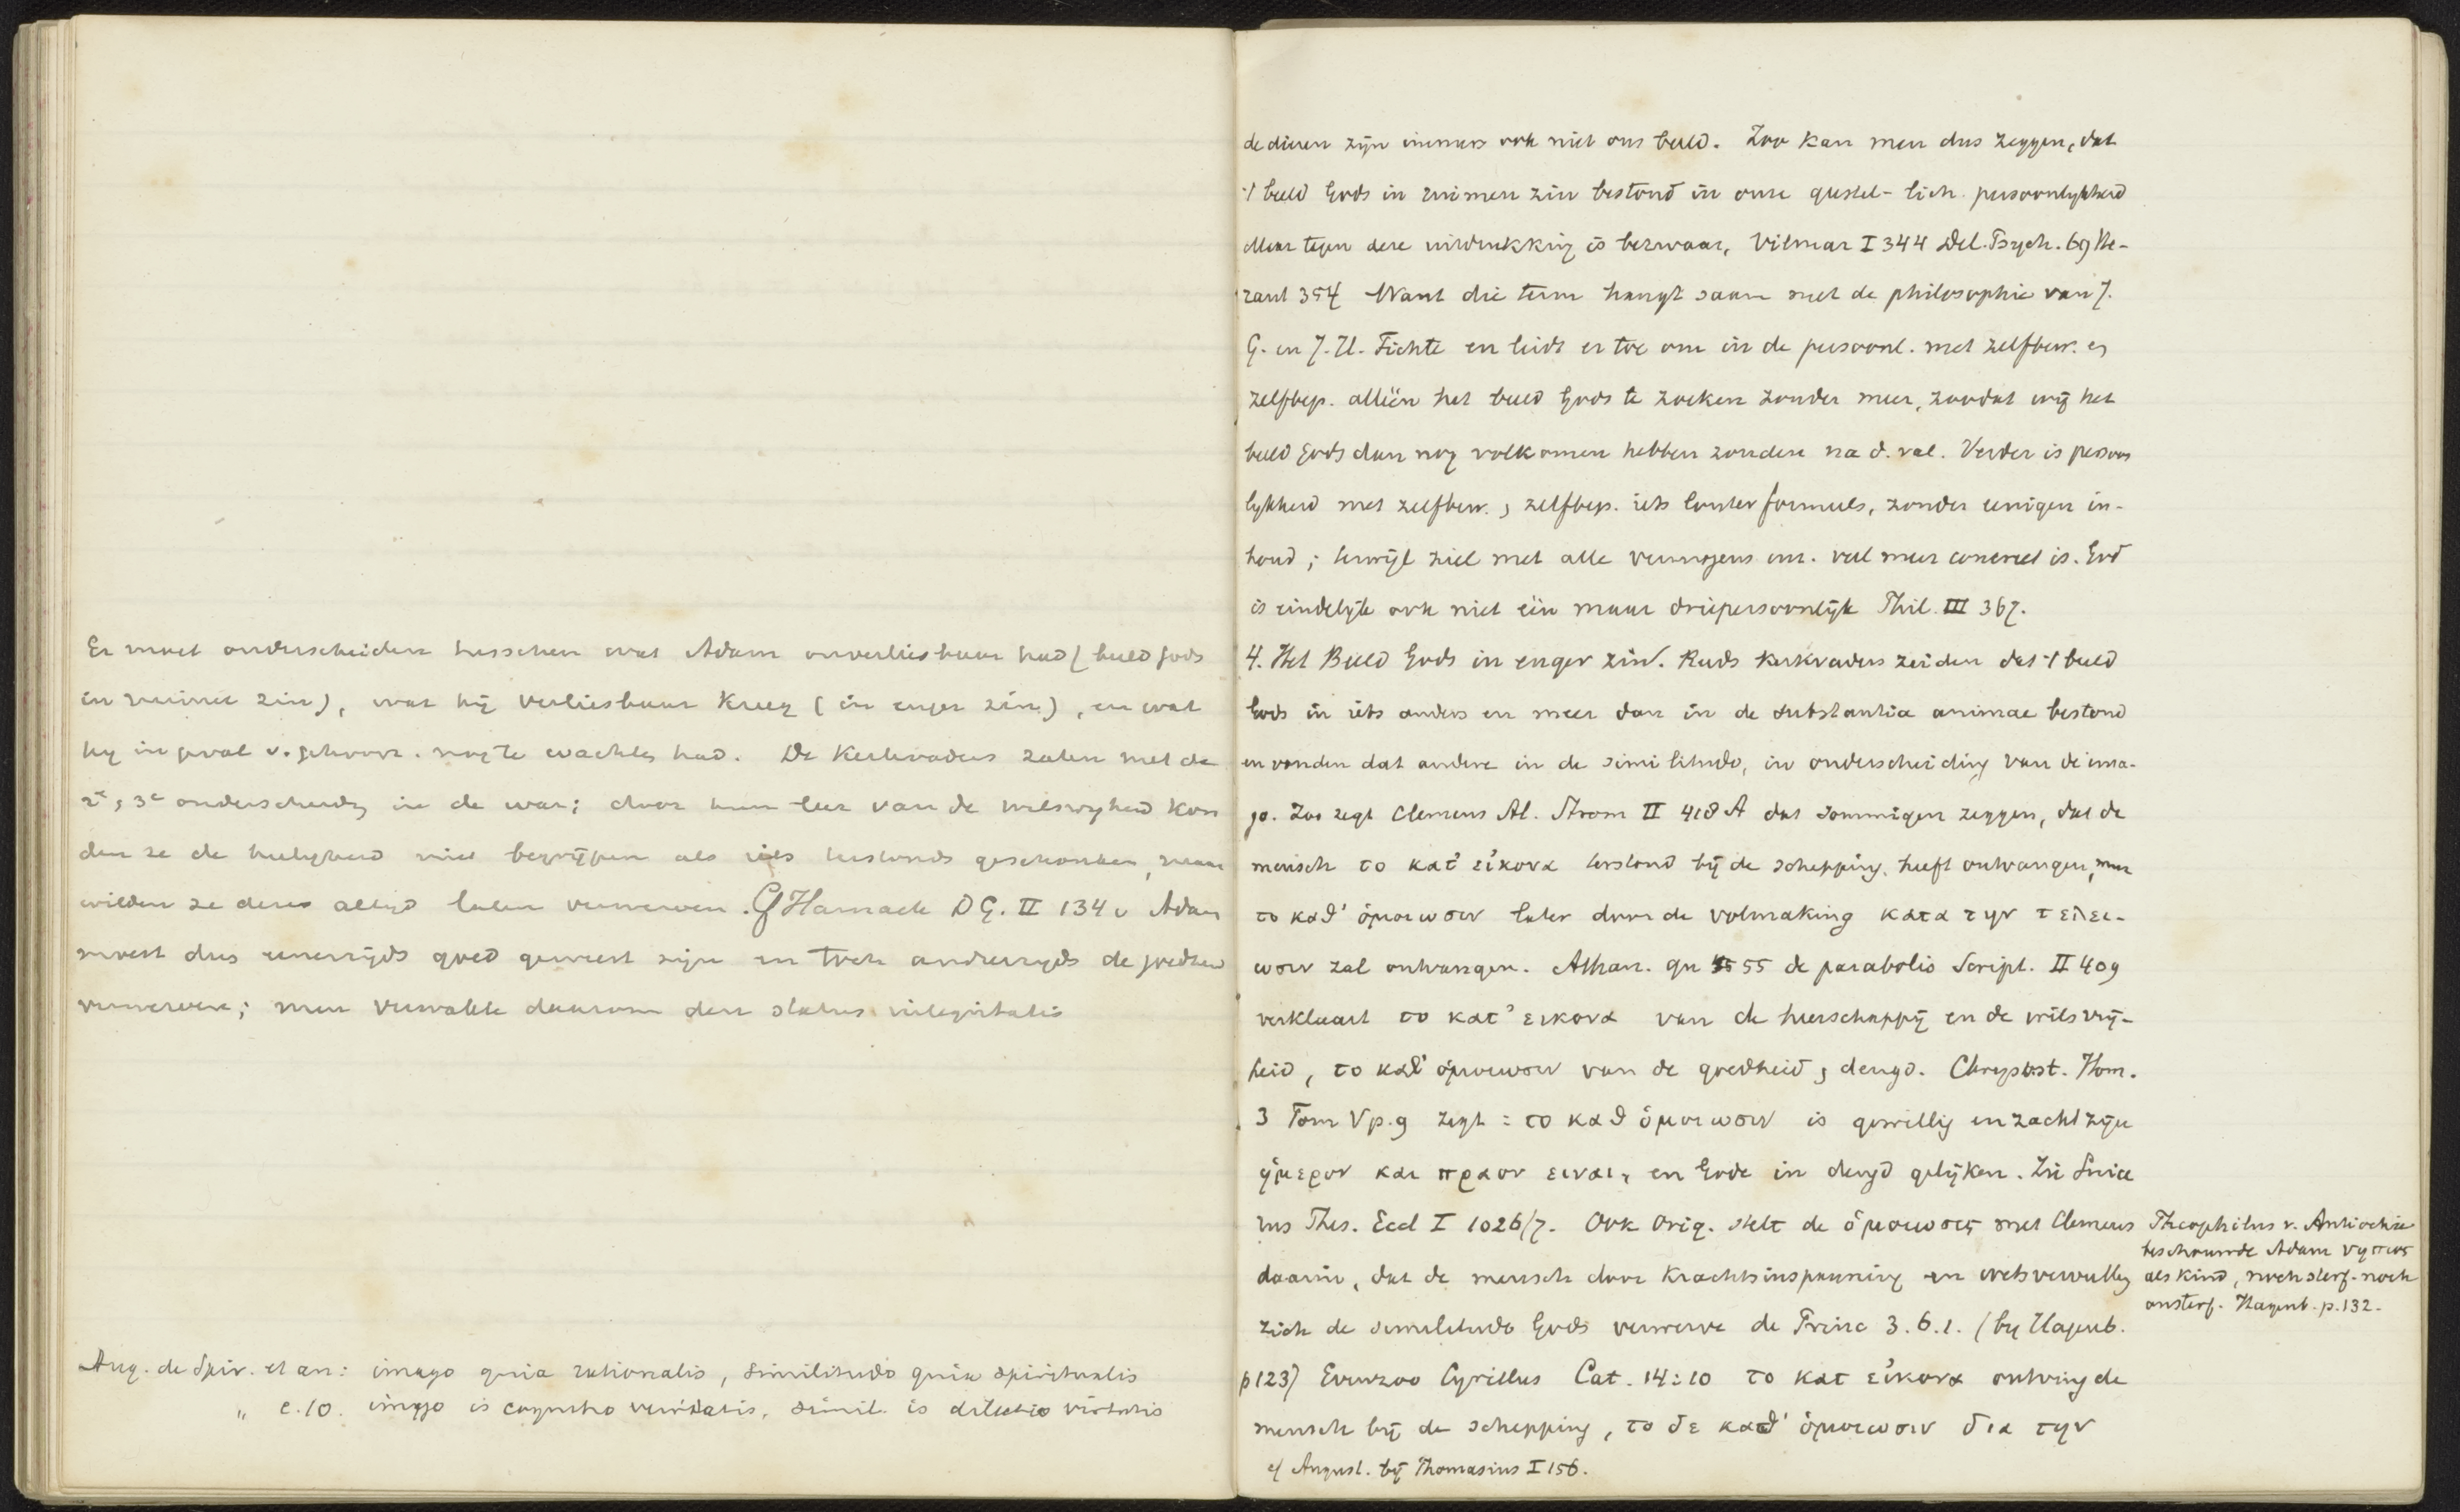 Er moet onderscheiden tusschen wat Adam onverliesbaar had (beeld Gods
in ruimer zin), wat hij verliesbaar kreeg (in enger zin), en wat
hij in geval v. gehoorz. nog te wachten had. De Kerkvaders zaten met de
2e, 3e onderscheidg in de war; door hun leer van de wilsvryheid kon
den ze de heiligheid niet begrijpen als iets terstonds geschonken, maar
wilden ze deze altijd laten verwerven. Cf Harnack DG. II 134 v Adam
moest dus eenerzijds goed geweest zijn en toch anderzijds de goedheid
verwerven; men verwakte daarom den status integritatis
Aug. de Spir. et an: imago quia rationalis, similitudo quia spiritualis
„ c. 10. imago is cognitio veritatis, simil. is dilectio virtutis
de dieren zijn immers ook niet ons beeld. Zoo kan men dus zeggen, dat
't beeld Gods in ruimen zin bestond in onze geestel- lich. persoonlijkheid
Maar tegen deze uitdrukking is bezwaar, Vilmar I 344 Del. Psych. 69 Ke-
zant 354 Want die term hangt saam met de philosophie van J.
G. en J. H. Fichte en leidt er toe om in de persoonl. met zelfbew. en
zelfbep. alléén het beeld Gods te zoeken zonder meer, zoodat wij het
beeld Gods dan nog volkomen hebben zouden na d. val. Verder is persoon
lijkheid met zelfbew. , zelfbep. iets louter formeels, zonder eenigen in-
houd; terwijl ziel met alle vermogens enz. veel meer concreet is. God
is eindelijk ook niet één maar driepersoonlijk Phil. III 367.
4. Het Beeld Gods in enger zin. Reeds Kerkvaders zeiden dat 't beeld
Gods in iets anders en meer dan in de substantia animae bestond
en vonden dat andere in de similitudo, in onderscheiding van de ima-
go. Zoo zegt Clemens Al. Strom II 418 A dat sommigen zeggen, dat de
mensch το κατ' εἰκονα terstond bij de schepping heeft ontvangen, maar
το καθ' ὁμοιωσιν later door de volmaking κατα την τελει-
ωσιν zal ontvangen. Athan. qu 55 de parabolis Script. II 409
verklaart το κατ' εικονα van de heerschappij en de wilsvrij-
heid, το καθ' ὁμοιωσιν van de goedheid , deugd. Chrysost. Hom.
3 Tom V p. 9 zegt : το καθ ὁμοιωσιν is gewillig en zacht zijn
ἡμερον και πραον ειναι, en Gode in deugd gelijken. Zie Suice
rus Thes. Eccl I 1026/7. Ook Orig. stelt de ὁμοιωσις met Clemens
daarin, dat de mensch door krachtsinspanning en wetsvervulling
zich de similitudo Gods verwerve de Princ 3. 6. 1. (bij Hagenb.
p 123) Evenzoo Cyrillus Cat. 14:10 το κατ εἰκονα ontving de
mensch bij de schepping, το δε καθ' ὁμοιωσιν δια την
cf August. bij Thomasius I 156.
Theophilus v. Antiochie
beschouwde Adam νηπιος
als kind, noch sterf- noch
onsterf. Hagenb. p. 132.